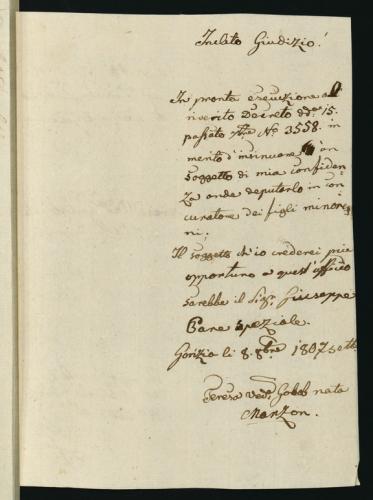 Inclito Giudizio!
In pronta esecuzione al
riverito Decreto dd.º 15.
passato 7bre Nº 3558. in
merito d'insinuare un
soggetto di mia confiden
za onde deputarlo in con
curatore dei figli minoren
ni;
Il soggetto ch'io crederei più
opportuno a quest'officio
sarebbe il Sigr. Giuseppe
Bane speziale.
Gorizia li 8. 8bre 1807
Teresa Ved.ª Gobb nata
Manzon.